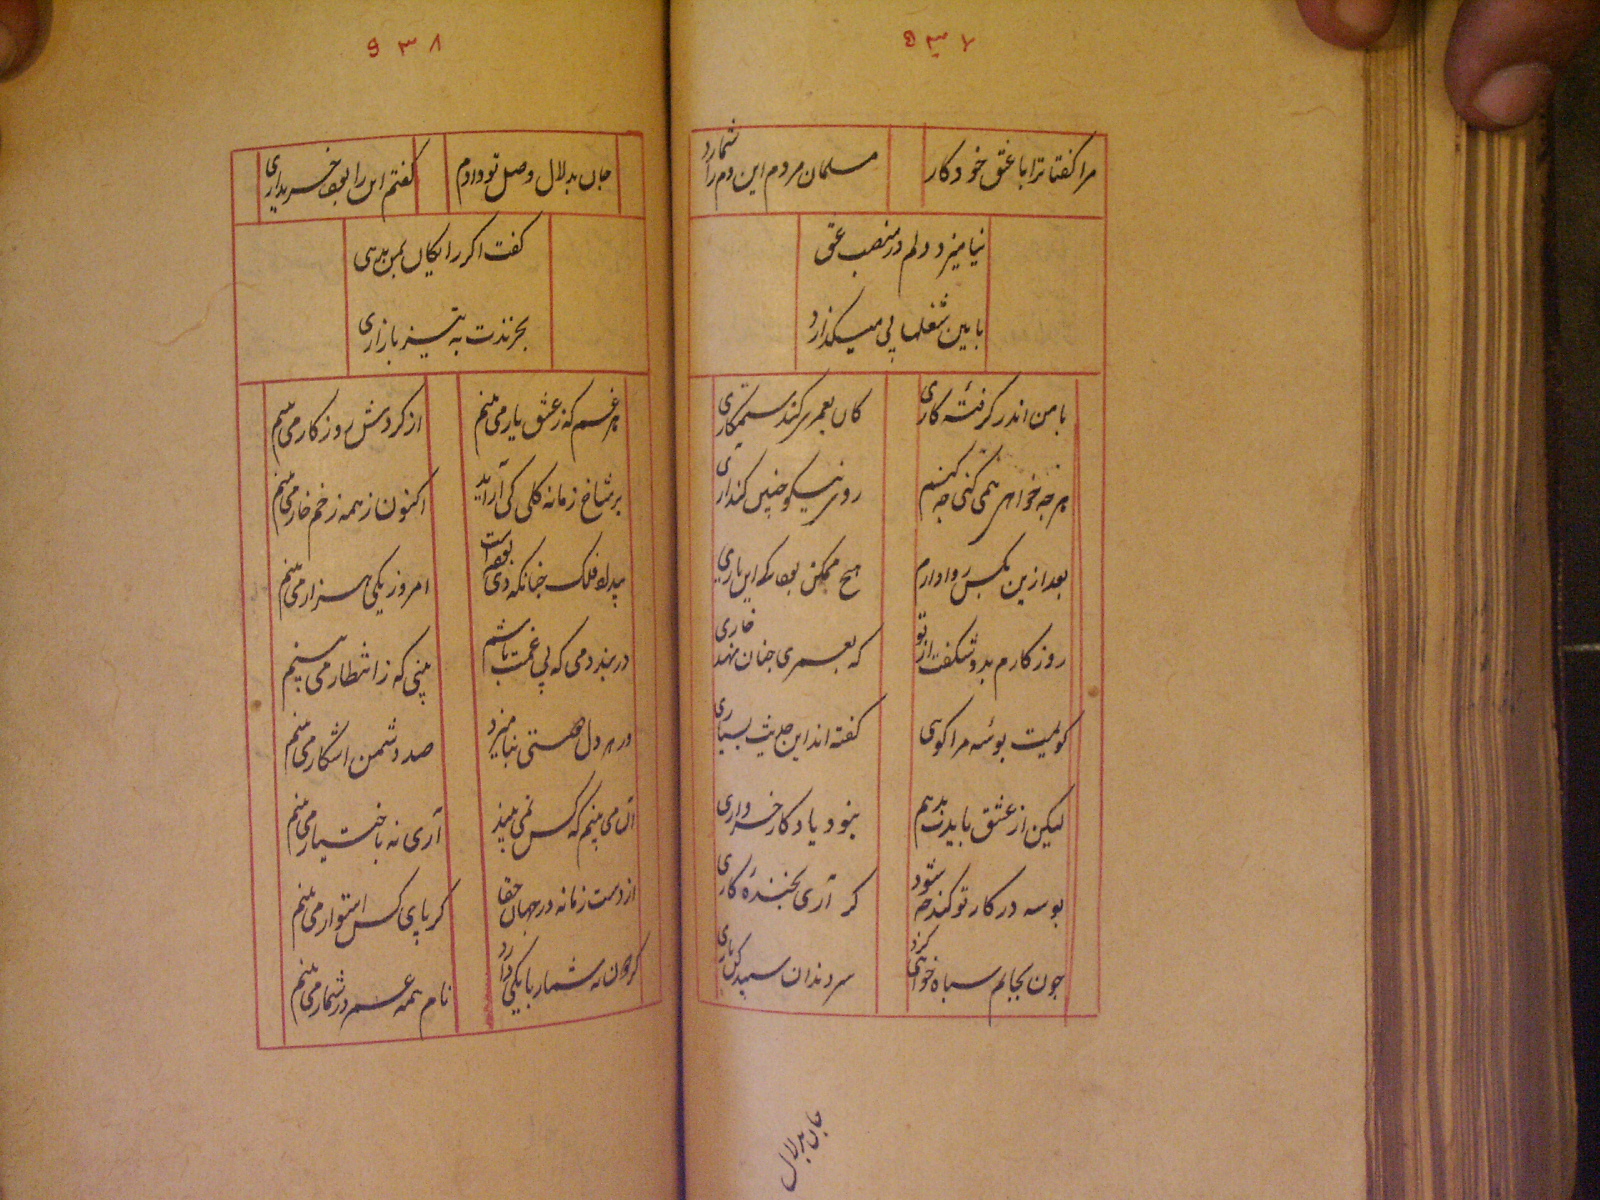 ۵۳۷
مرا گفتا ترا با عشق خود کار
مسلمان مردم این دم را شمارد
نیامیزد دلم در منصب عشق
با بین شغلها پی میگذارد
با من اندر گرفتهٔ کاری
کان بعمری کند ستمکاری
هر چه خواهی همی کنی چه کنم
روی نیکو چنین کند آری
بعد ازین بکس روا دارم
هیچ ممکن بود که این باری
روزگارم بدو شگفت از تو
که بعمری چنان نهد خاری
گویمت بوسهٔ مرا گوئی
گفته اند این حدیث بسیاری
لیکن از عشق بایدت بدهم
بنود یادگار خرواری
بوسه در کار تو کند چه شود
گر آری بخندهٔ کاری
چون بجایم سپاه خواهی کرد
سر دندان سپید کن باری
جان بدلال
۹۳۸
جان بدلال وصل تو دادم
گفتم این را بود خریداری
گفت اگر رایگان بمن بدهی
بخرندت به تیز بازاری
هر غم که ز عشق یار می بینم
از گردش روزگار می بینم
بر شاخ زمانه گلی کی آراید
اکنون ز همه زخم خار می بینم
بیداد فلک چنانکه دی بود است
امروز یکی هزار می بینم
در بند دمی که بی غمت باشم
بینی که ز انتظار می بینم
در هر دل دوستی نیامیزد
صد دشمن اشکار می بینم
آن می بینم که کس نمی بیند
آری نه باختیار می بینم
از دست زمانه در جهان حقا
گر پای کس استوار می بینم
گردون نه شمار با یکی دارد
نام همه غم در شمار می بینم